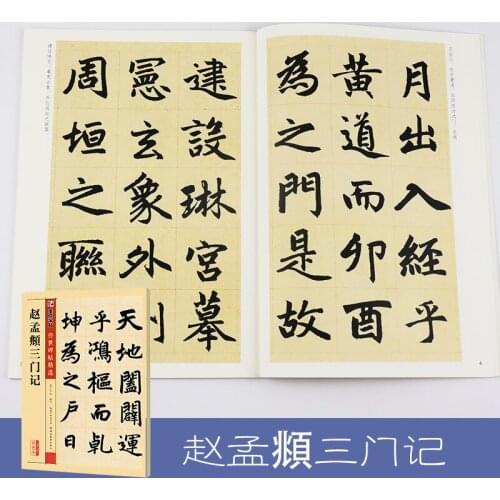 月出入經乎
黄道而卯酉
為之門是故
建設琳宮摹
憲玄象外則
周垣之聯
传世碑帖精选
赵孟頫三门记
天地闔闢運
乎鴻樞而乹
坤為之戶日
赵孟頫三门记